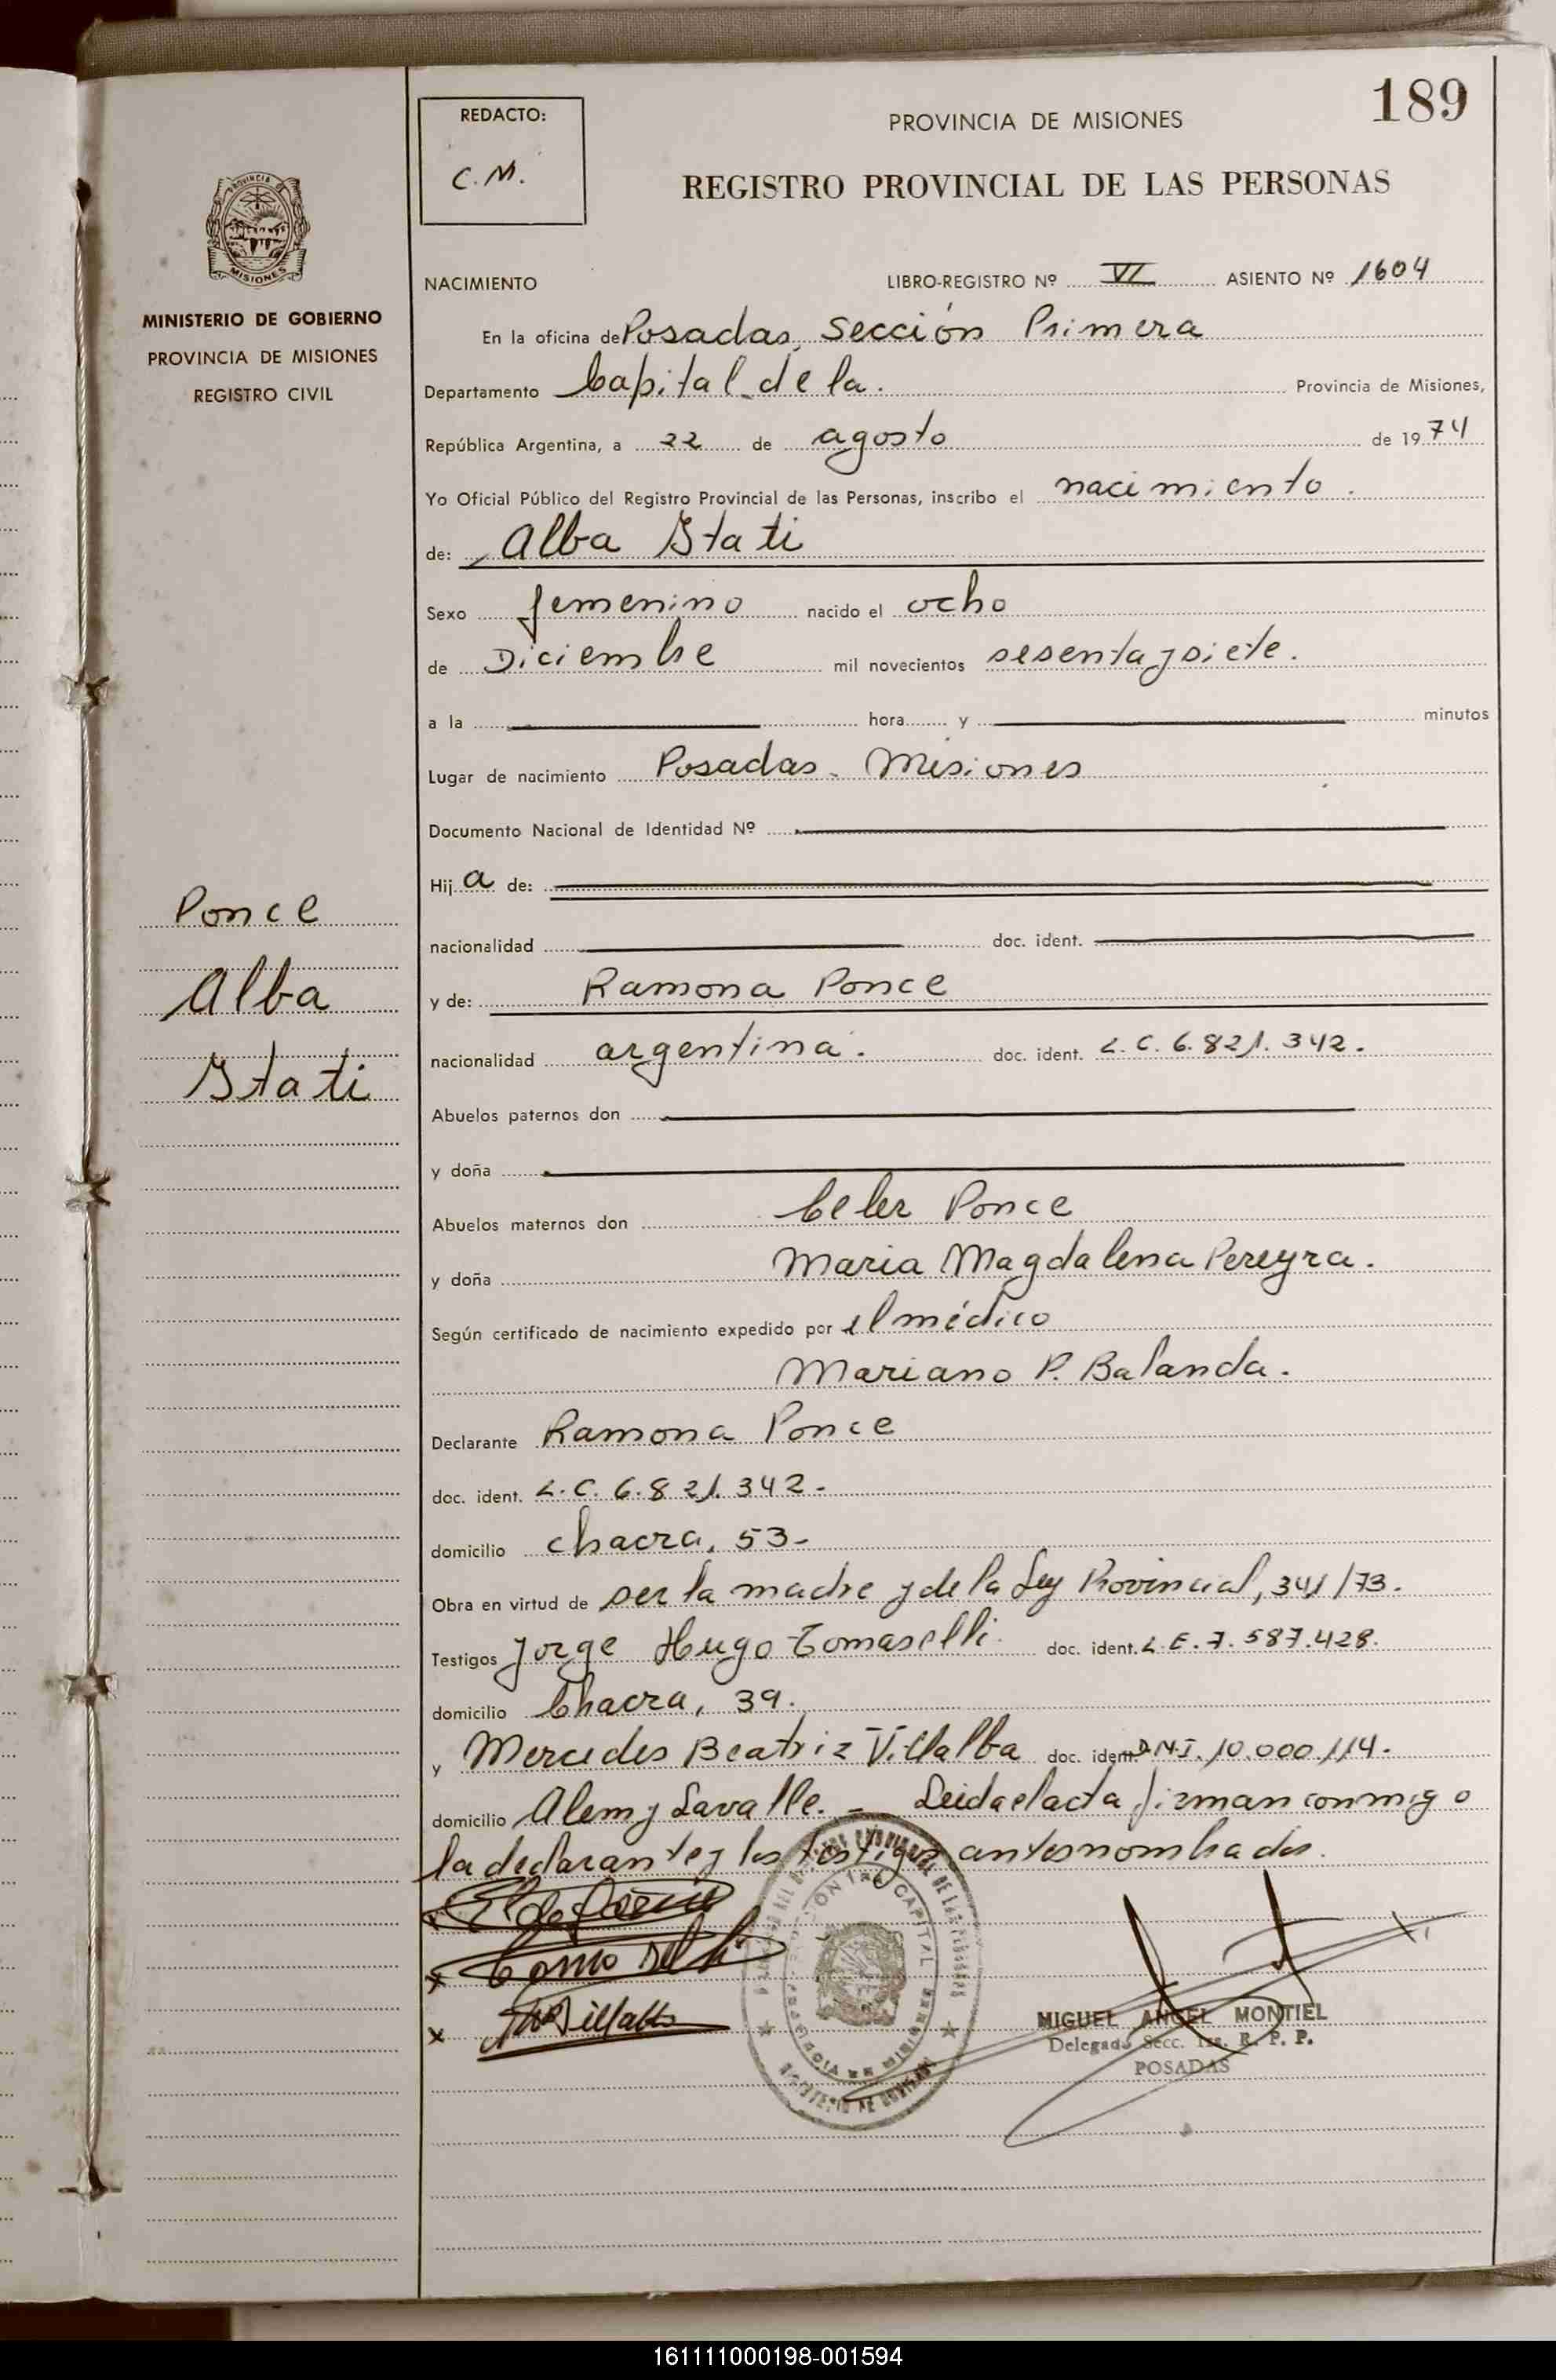 189
REDACTO:
C.M.
PROVINCIA DE MISIONES
REGISTRO PROVINCIAL DE LAS PERSONAS
PROVINCIA DE
MISIONES
MINISTERIO DE GOBIERNO
PROVINCIA DE MISIONES
REGISTRO CIVIL
NACIMIENTO LIBRO-REGISTRO Nº VI ASIENTO Nº 1604
En la oficina de Posadas, Sección Primera
Departamento Capital de la. Provincia de Misiones,
República Argentina, a 22 de agosto de 1974
Yo Oficial Público del Registro Provincial de las Personas, inscribo el nacimiento.
de: Alba Itati
Sexo femenino nacido el ocho
de Diciembre mil novecientos sesenta y siete.
a la hora y minutos
Lugar de nacimiento Posadas. Misiones
Documento Nacional de Identidad Nº
Hij a de:
nacionalidad doc. ident.
y de: Ramona Ponce
nacionalidad argentina. doc. ident. L.C. 6.821.342.
Abuelos paternos don
y doña
Abuelos maternos don Celer Ponce
y doña Maria Magdalena Pereyra.
Según certificado de nacimiento expedido por el médico
Mariano P. Balanda.
Declarante Ramona Ponce
doc. ident. L.C. 6.821.342.-
domicilio chacra, 53-
Obra en virtud de ser la madre y de la Ley Provincial, 341/73.
Testigos Jorge Hugo Tomaselli. doc. ident. L.E. 7.587.428.
domicilio Chacra, 39.
y Mercedes Beatriz Villalba doc. ident. D.N.I. 10.000.114.
domicilio Alem y Lavalle. - Leida el acta firman conmigo
la declarante y los testigos antes nombrados.
Ponce
Alba
Itati
MIGUEL ANGEL MONTIEL
Delegado Secc. 1ra. R. P. P.
POSADAS
161111000198-001594